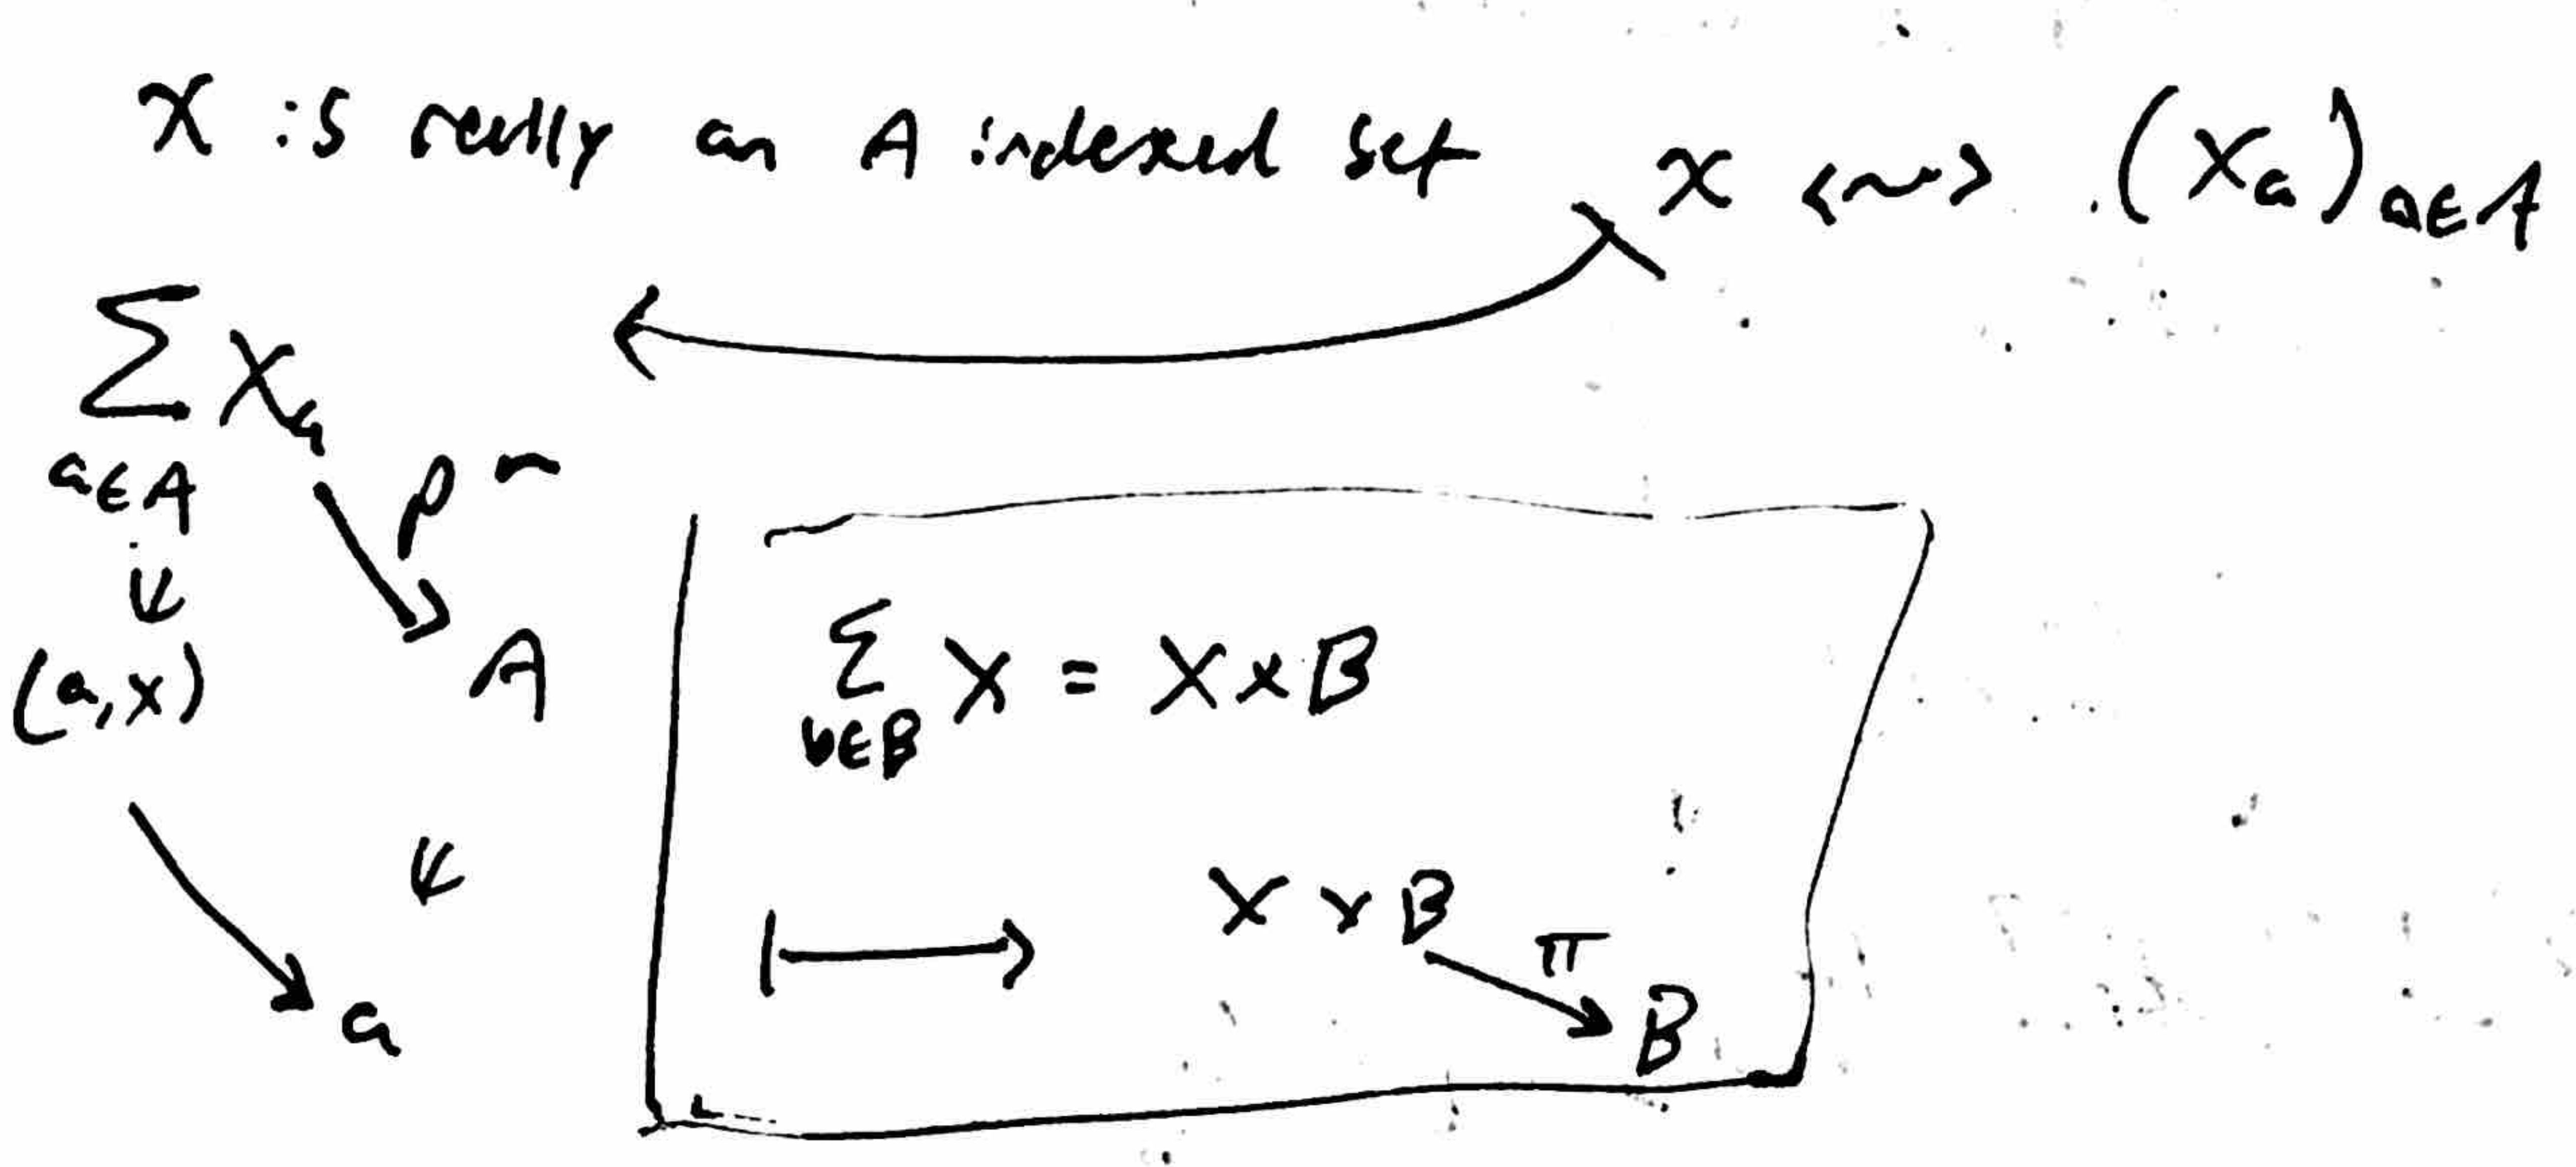 X is really an A indexed set X <~> (X_a)_{a∈A}
∑_{a∈A} X_a
p
A
(a,x)
a
∑_{b∈B} X = X×B
X×B
π
B